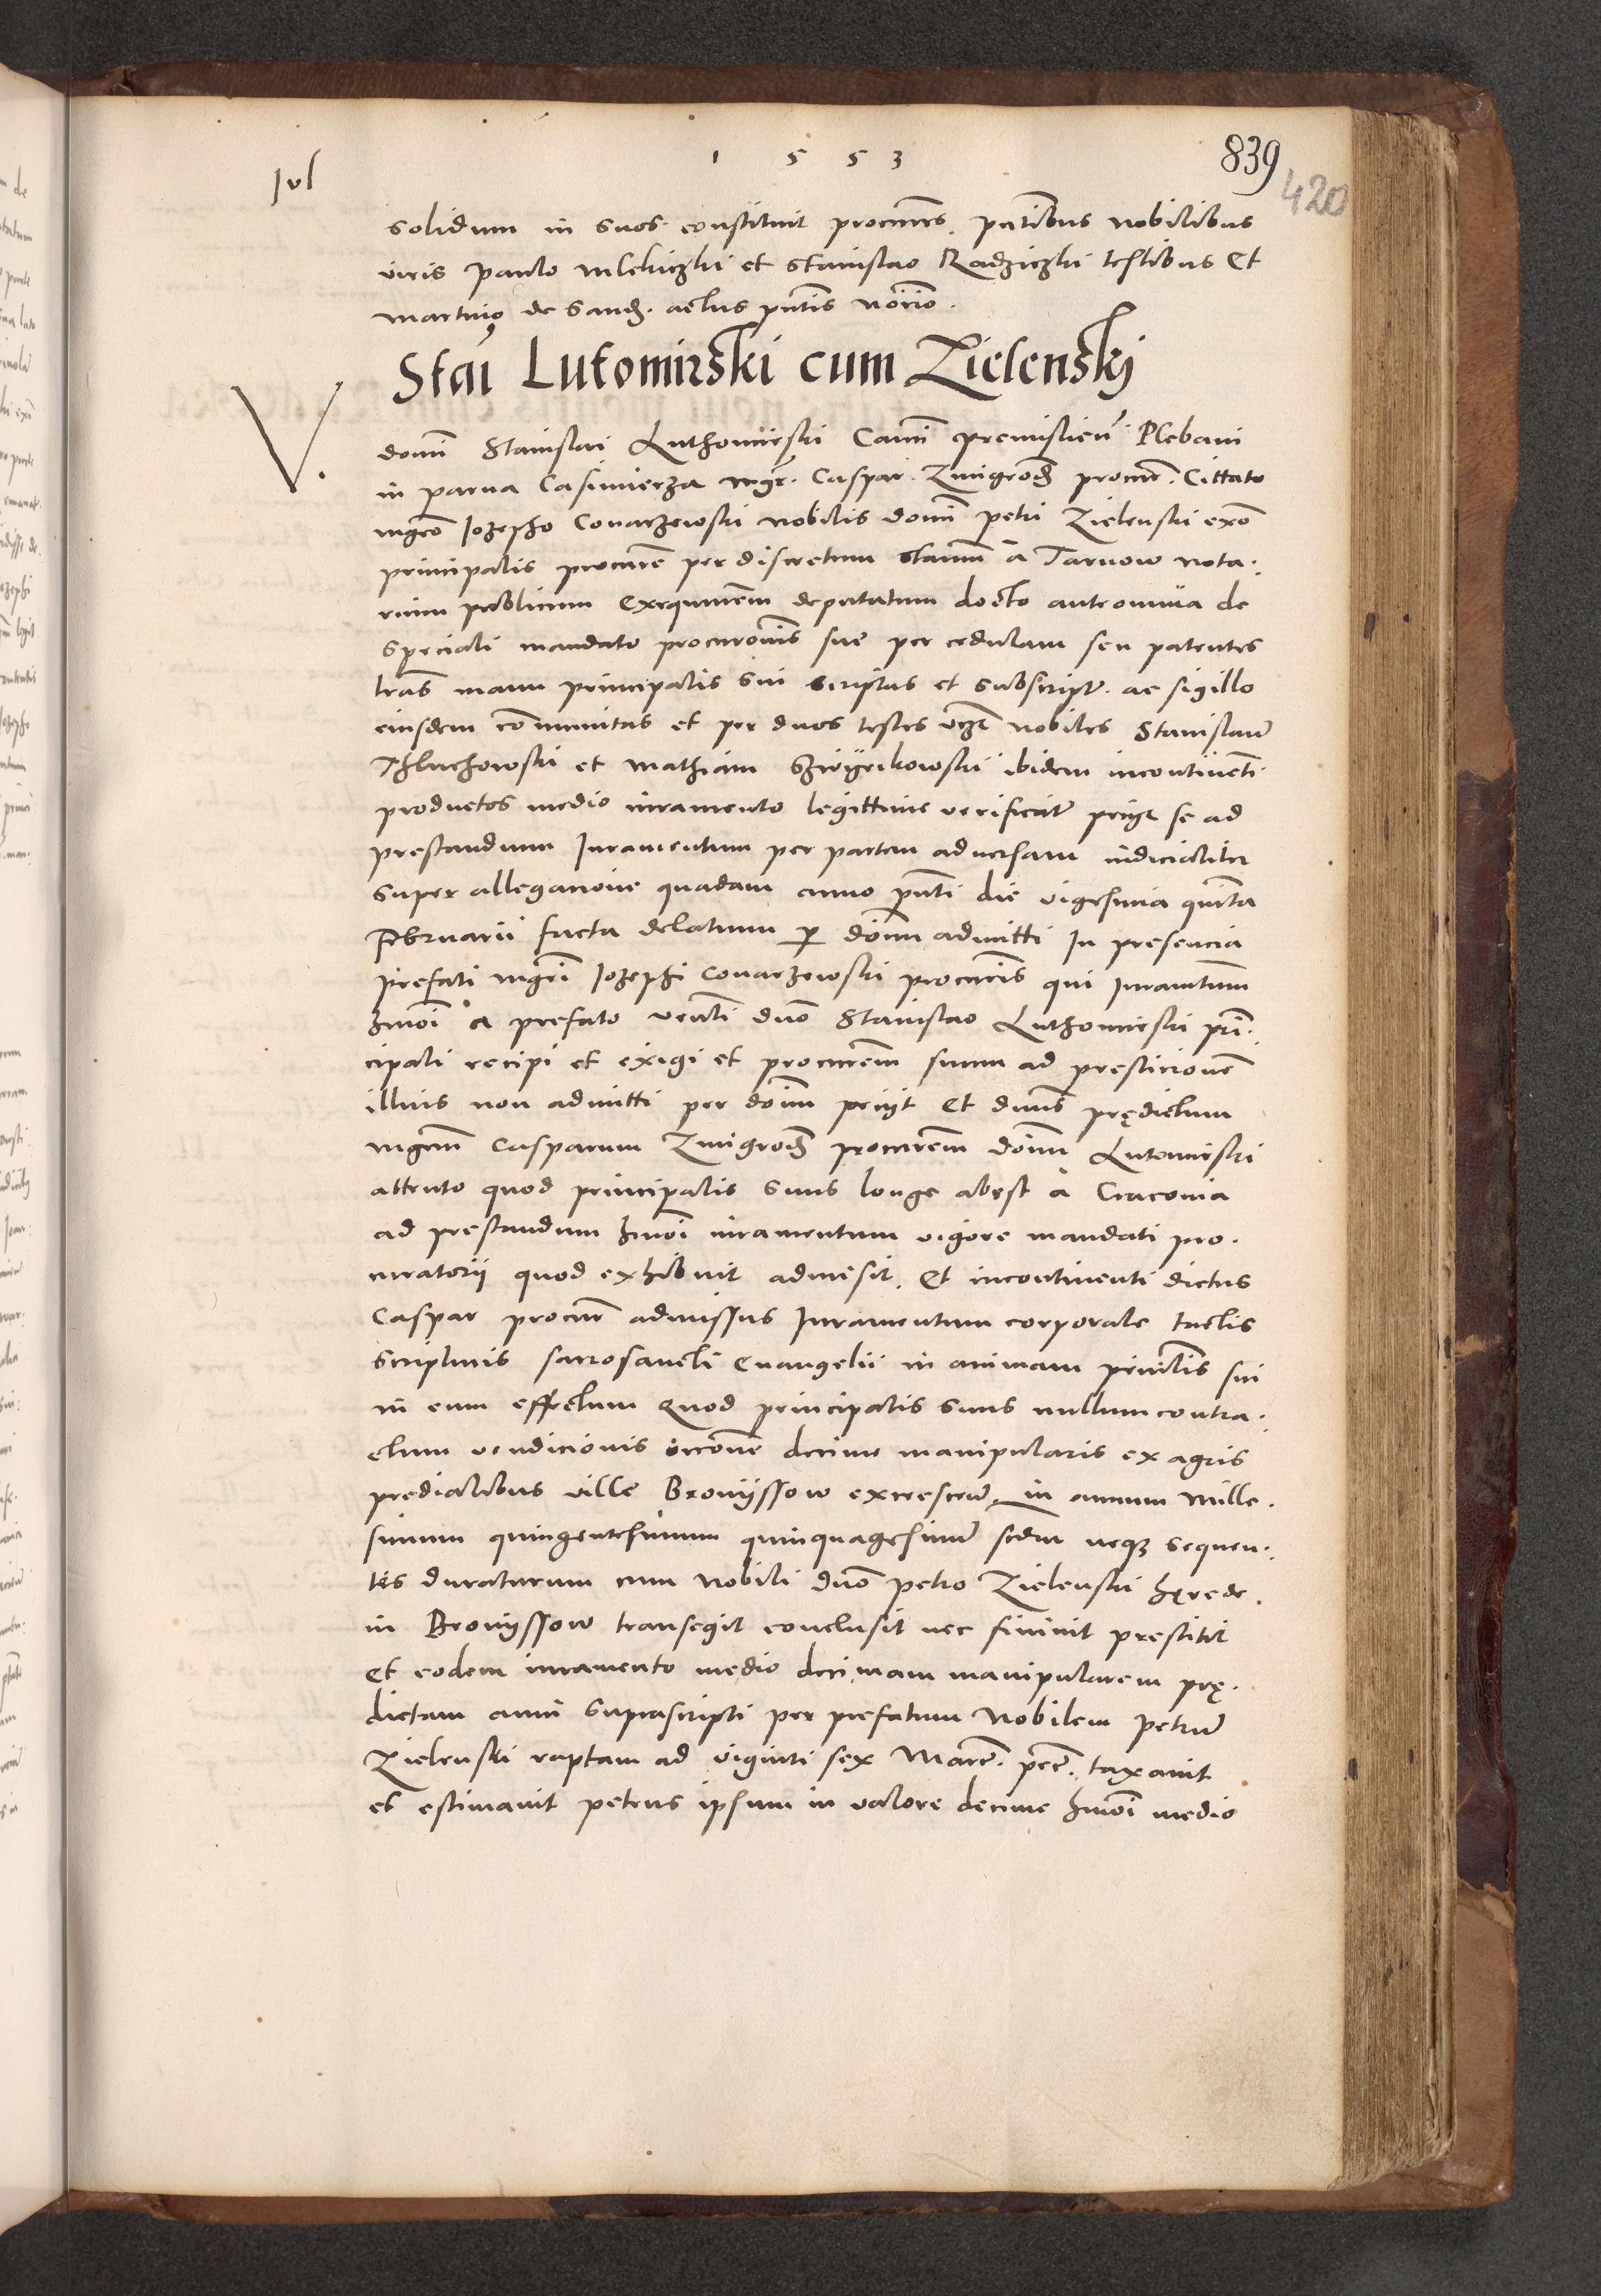 Jul 1 5 5 3 839
420
solidum in suos constituit procures. pntibus nobilibus
viris Paulo Mlekiczki et Stanislao Radziczki testibus Et
martino de Sand. actus pntis norio.
Stai Lutomirski cum Zielenskj
V. domi Stanislai Luthomirski Canci premislien Plebani
in parua Casimierza mgr. Caspar Zmigrod procur. Cittato
mgro Jozepho Conarzewski nobilis domi petri Zielenski exo
principalis procure per discretum Stanum a Tarnow nota.
rium publicum Exequutrem deputatum docto autromnia de
speciali mandato procuronis sue per cedulam seu patentes
lras manu principalis sui scriptas et subscript. ac sigillo
eiusdem communitas et per duos testes vzt nobiles Stanislaum
Thluchowski et Mathiam Szwyrikowski ibidem incontinenti
productos medio iuramento legittime verificat petiit se ad
prestandum Juramentum per partem aduersam iudicialiter
super allegacione quadam anno pnti die vigesima quinta
Februarii facta delatum p domi admitti In presencia
prefati mgri Jozephi Conarzewski procuris qui Juramtum
hmoi a prefato venti dno Stanislao Luthomirski prin.
cipali recipi et exigi et procurem suum ad presticionem
illius non admitti per domi petiit Et dnus prędictum
mgrum Casparum Zmigrod procurem domi Lutomirski
attento quod principalis suus longe abest a Cracouia
ad prestandum hmoi iuramentum vigore mandati pro.
curatorii quod exhibuit admisit. Et incontinenti dictus
Caspar procur admissus Juramentum corporale tactis
scripturis sacrosancti Euangelii in animam princlis sui
in eum effectum Quod principalis suus nullum contra.
ctum vendicionis occone decime manipularis ex agris
predialibus ville Bronyssow excrescen. in annum Mille.
simum quingentesimum quinquagesimum scdm neq3 sequen.
tes duraturum cum Nobili dno Petro Zielenski hęrede.
in Bronyssow transegit conclusit nec finiuit prestitit
Et eodem iuramento medio decimam manipularem prę.
dictam anni suprascripti per prefatum Nobilem Petrum
Zielenski raptam ad viginti sex Marc. pec. taxauit
et estimauit petens ipsum in valore decime hmoi medio